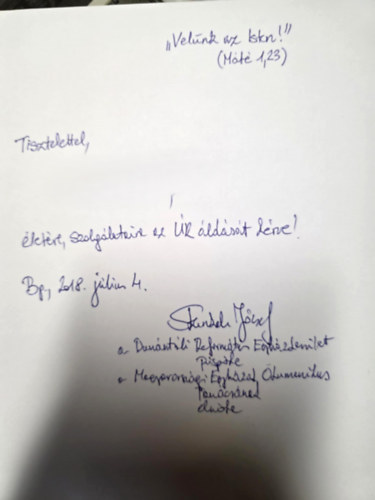 „Velünk az Isten!”
(Máté 1,23)
Tisztelettel,
életére, szolgálataira az ÚR áldását kérve!
Bp, 2018. július 4.
Steinbach József
a Dunántúli Református Egyházkerület
püspöke
a Magyarországi Egyházak Ökumenikus
Tanácsának
elnöke